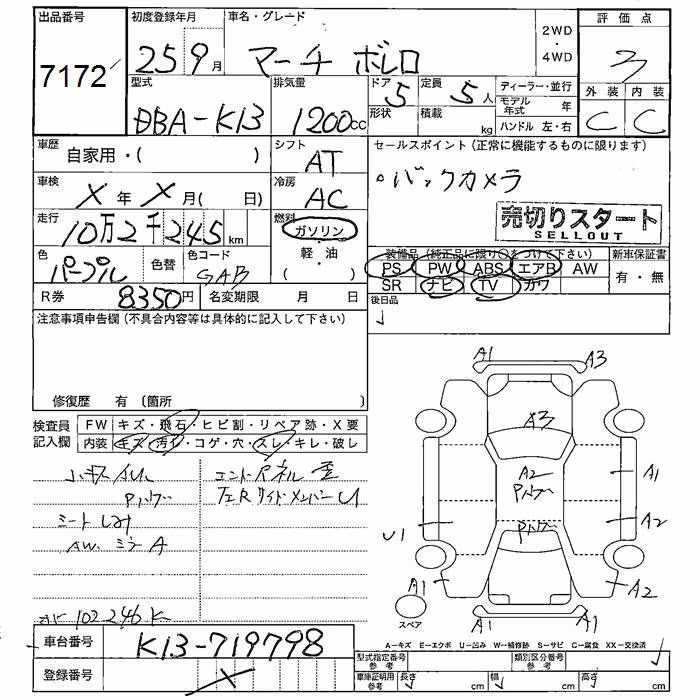 出品番号 初度登録年月 車名・グレード 2WD 評価点
7172 25 9月 マーチ ボレロ ・ 3
4WD
型式 排気量 ドア 5 定員 5人 ディーラー・並行 外装 内装
DBA-K13 1200cc 形状 積載 kg モデル年式 年 C C
ハンドル 左・右
車歴 自家用・( ) シフト AT セールスポイント (正常に機能するものに限ります)
車検 X年 X月( 日) 冷房 AC ・バックカメラ
走行 10万2千245km 燃料 ガソリン 売切りスタート
軽・油 SELLOUT
色 パープル 色替 色コード GAB ( ) 装備品 (純正品に限り○をつけて下さい) 新車保証書
PS PW ABS エアB AW 有・無
R券 8350円 名変期限 月 日 SR ナビ TV カワ
後日品
注意事項申告欄 (不具合内容等は具体的に記入して下さい)
修復歴 有 (箇所
検査員記入欄 FW キズ・飛石・ヒビ割・リペア跡・X要
内装 キズ・汚れ・コゲ・穴・スレ・キレ・破レ
小キズ AU エンドパネル 歪
シートしみ
AW ミラーA
102-246K
A1 A3
A3
A2
A1
A2
U1
A1 A2
A1 A1
スペア
A=キズ E=エクボ U=凹み W=補修跡 S=サビ C=腐食 XX=交換済
車台番号 K13-719798
型式指定番号 参考 類別区分番号 参考
登録番号 X
車庫証明用 参考 長さ cm 幅 cm 高さ cm